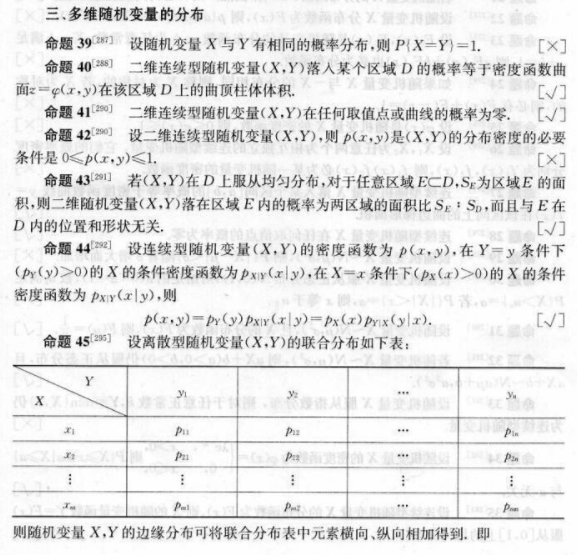 三、多维随机变量的分布
命题 39[287] 设随机变量 X 与 Y 有相同的概率分布,则 P{X=Y}=1. [×]
命题 40[288] 二维连续型随机变量(X,Y)落入某个区域 D 的概率等于密度函数曲
面z=φ(x,y)在该区域 D 上的曲顶柱体体积. [√]
命题 41[290] 二维连续型随机变量(X,Y)在任何取值点或曲线的概率为零. [√]
命题 42[290] 设二维连续型随机变量(X,Y),则 p(x,y)是(X,Y)的分布密度的必要
条件是 0≤p(x,y)≤1. [×]
命题 43[291] 若(X,Y)在 D 上服从均匀分布,对于任意区域 E⊂D,S_E为区域 E 的面
积,则二维随机变量(X,Y)落在区域 E 内的概率为两区域的面积比 S_E : S_D,而且与 E 在
D 内的位置和形状无关. [√]
命题 44[292] 设连续型随机变量(X,Y)的密度函数为 p(x,y),在 Y=y 条件下
(p_Y(y)>0)的 X 的条件密度函数为 p_{X|Y}(x|y),在 X=x 条件下(p_X(x)>0)的 X 的条件
密度函数为 p_{X|Y}(x|y),则
p(x,y)=p_Y(y)p_{X|Y}(x|y)=p_X(x)p_{Y|X}(y|x). [√]
命题 45[295] 设离散型随机变量(X,Y)的联合分布如下表:
Y
X y₁ y₂ … yₙ
x₁ p₁₁ p₁₂ … p₁ₙ
x₂ p₂₁ p₂₂ … p₂ₙ
⋮ ⋮ ⋮ ⋮
xₘ pₘ₁ pₘ₂ … pₘₙ
则随机变量 X,Y 的边缘分布可将联合分布表中元素横向、纵向相加得到. 即